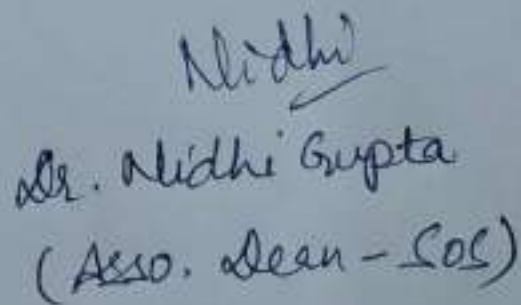 Nidhi
Dr. Nidhi Gupta
(Asso. Dean - SOS)